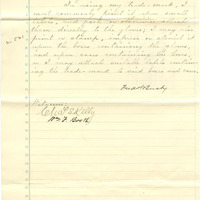 In using my trade-mark, I
most commonly print it upon small
labels, and paste or otherwise attach
them directly to the gloves; I may also
print or stamp, impress or stencil it
upon the boxes containing the gloves,
and upon cases containing the boxes,
or I may attach suitable labels contain-
ing the trade-mark to said boxes and cases.
Witnesses:
Wm. F. Booth